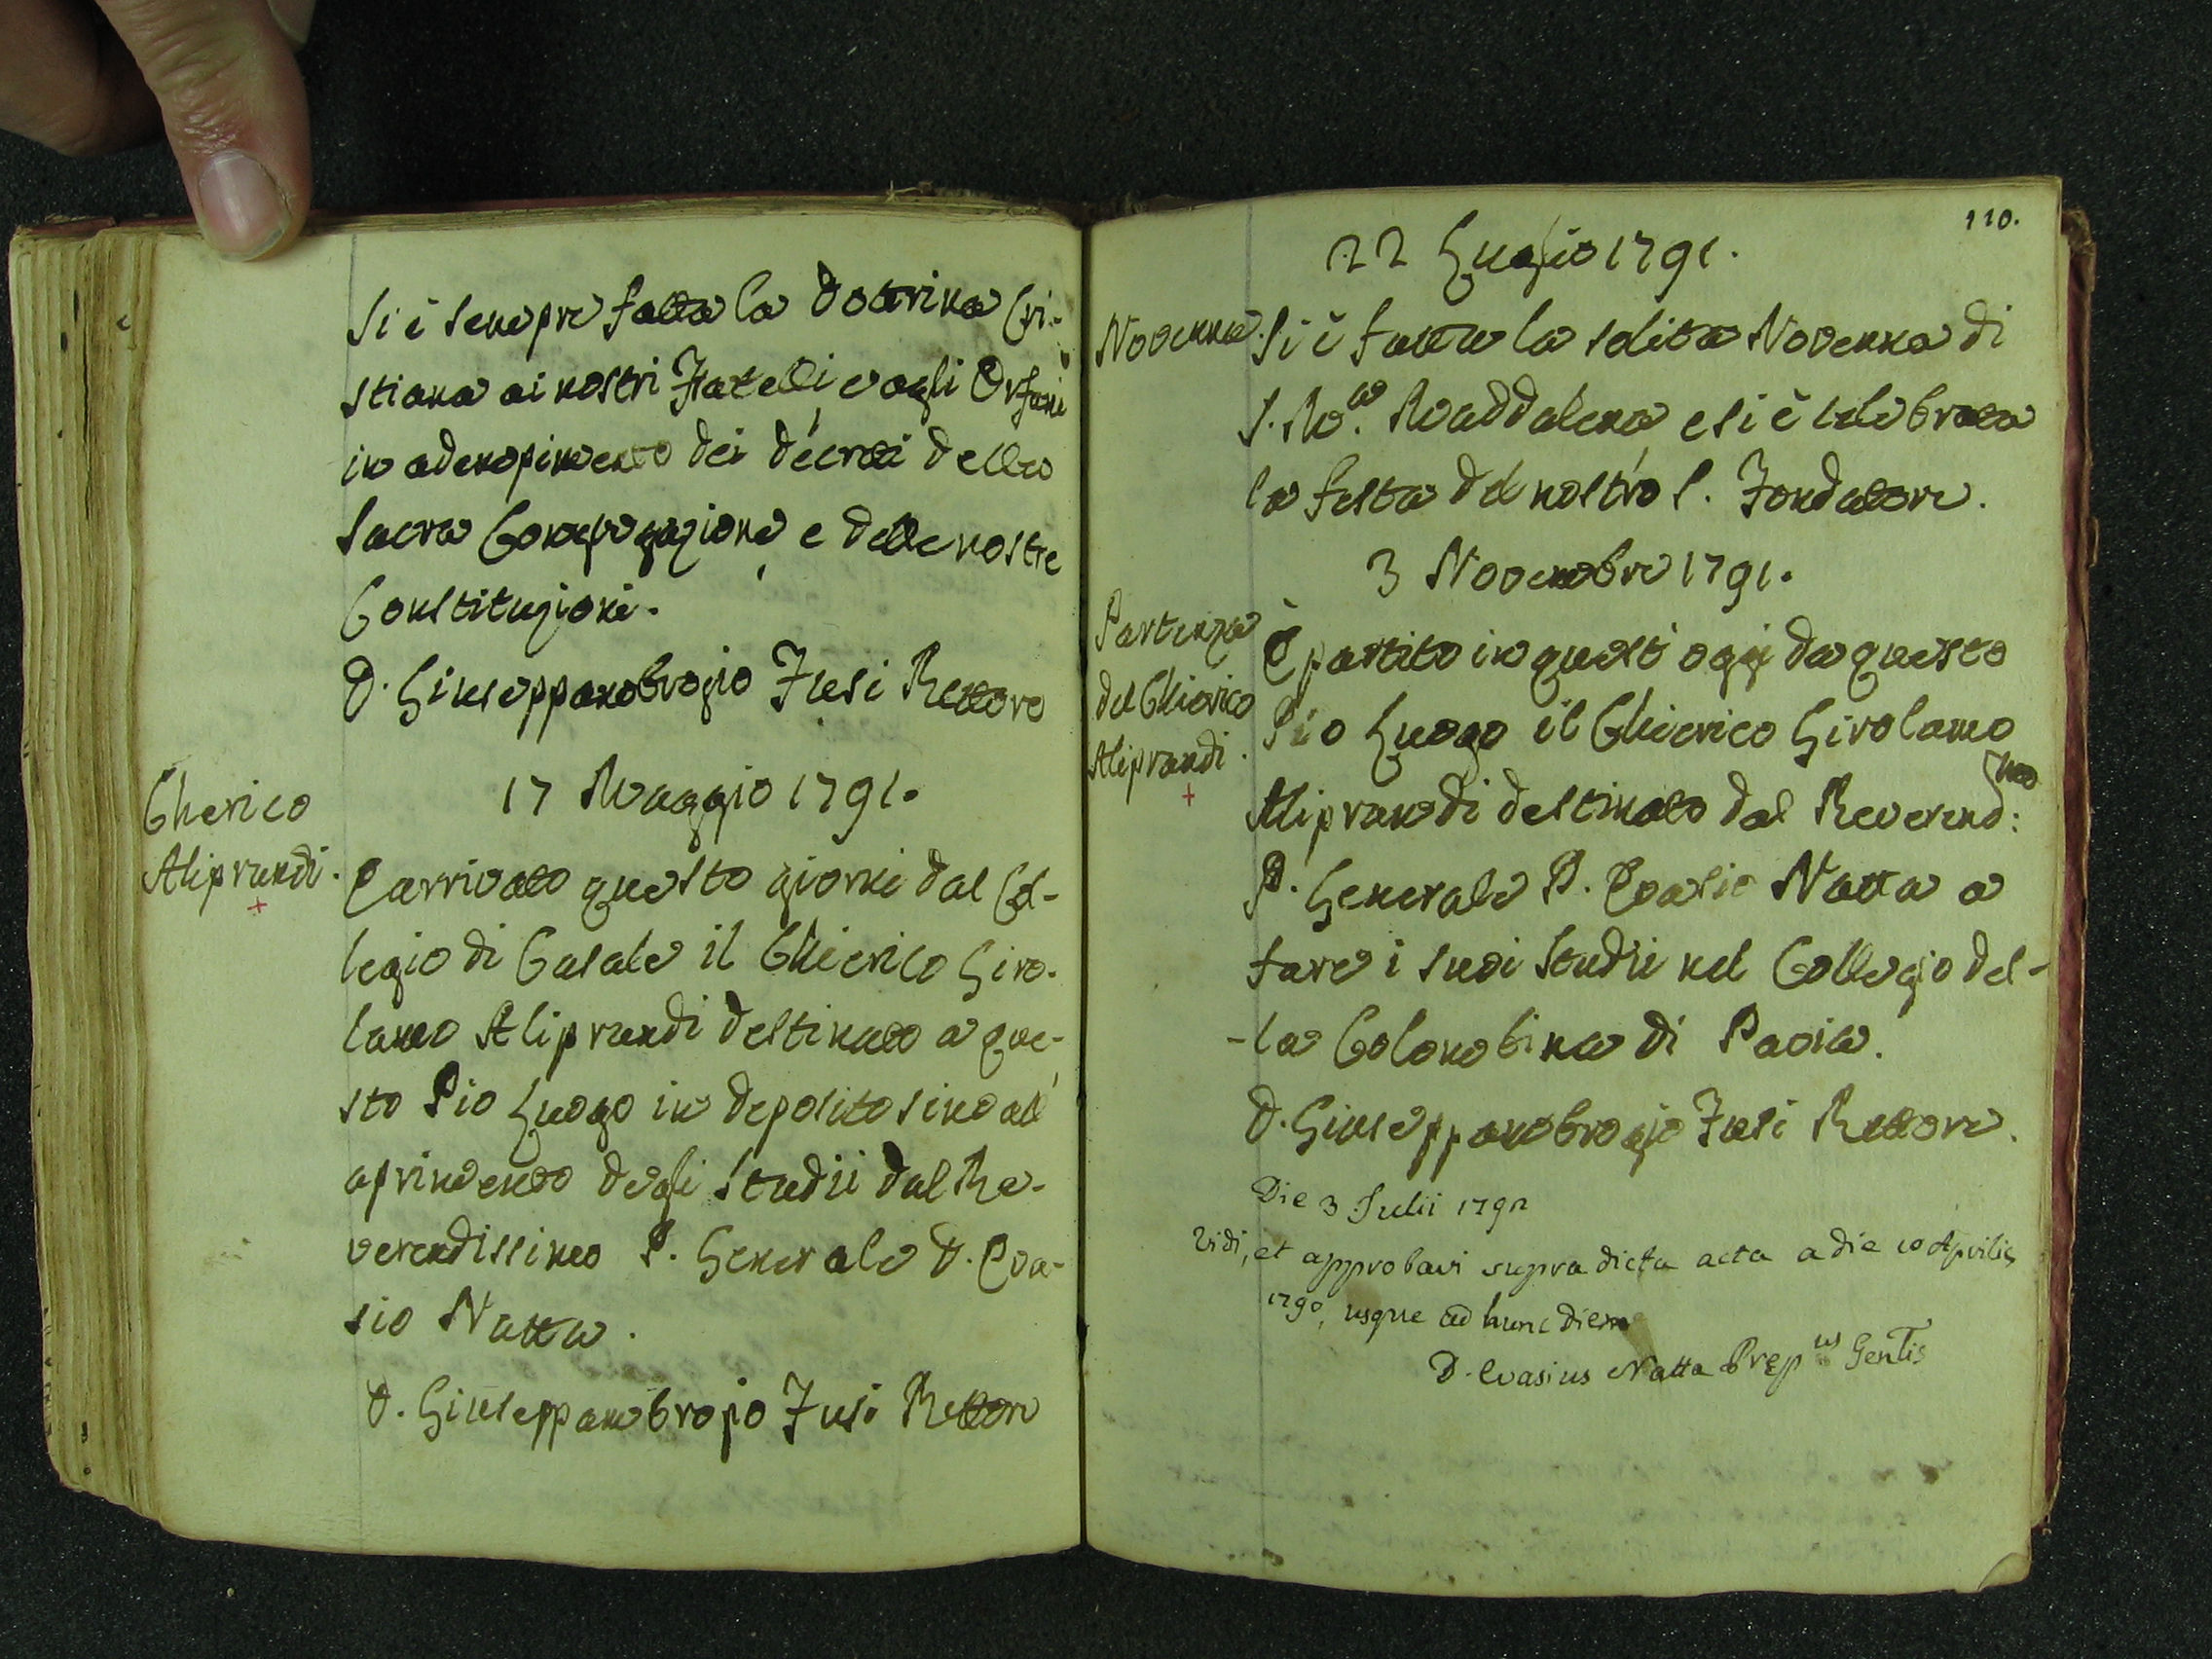 Si è sempre fatta la dottrina Cri-
stiana ai nostri Fratelli e agli Orfani
in adempimento dei decreti della
Sacra Congregazione e delle nostre
Constituzioni.
D. Giuseppambrogio Fusi Rettore
17 Maggio 1791.
Cherico
Aliprandi.
È arrivato questo giorni dal Col-
legio di Casale il Chierico Giro-
lamo Aliprandi destinato a que-
sto Pio Luogo in deposito sino all'
aprimento degli Studii dal Re-
verendissimo P. Generale D. Eva-
sio Natta.
D. Giuseppambrogio Fusi Rettore
110.
22 Luglio 1791.
Novenna.
Si è fatta la solita Novenna di
S. M.a Maddalena e si è celebrata
la festa del nostro S. Fondatore.
3 Novembre 1791.
Partenza
del Chierico
Aliprandi.
È partito in quest' oggi da questo
Pio Luogo il Chierico Girolamo
Aliprandi destinato dal Reverend:mo
P. Generale D. Evasio Natta a
fare i suoi Studii nel Collegio del-
-la Colombina di Pavia.
D. Giuseppambrogio Fusi Rettore.
Die 3 Julii 1792
Vidi, et approbavi supradicta acta a die 10 Aprilis
1790, usque ad hunc diem
D. Evasius Natta Prep.us Gen.lis